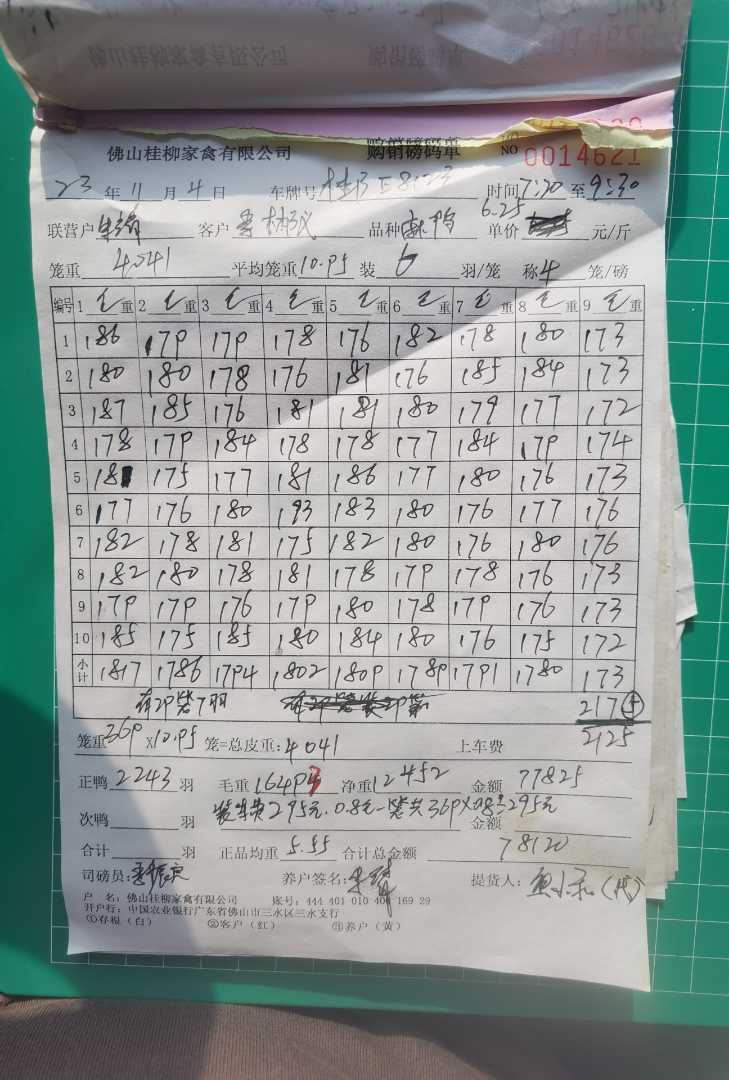 佛山桂柳家禽有限公司 购销磅码单 NO 0014621
23 年 11 月 4 日 车牌号 时间 7:30 至 9:30
联营户 客户 品种 麻鸭 单价 6.25 元/斤
笼重 4041 平均笼重 10.95 装 6 羽/笼 称 4 笼/磅
编号 1 毛 重 2 毛 重 3 毛 重 4 毛 重 5 毛 重 6 毛 重 7 毛 重 8 毛 重 9 毛 重
1 186 179 179 178 176 182 178 180 173
2 180 180 178 176 181 176 185 184 173
3 187 185 176 181 181 180 179 177 172
4 178 179 184 178 178 177 184 179 174
5 181 175 177 181 186 177 180 176 173
6 177 176 180 193 183 180 176 177 176
7 182 178 181 175 182 180 176 180 176
8 182 180 178 181 178 179 178 176 173
9 179 179 176 179 180 178 179 176 173
10 185 175 185 180 184 180 176 175 172
小计 1817 1786 1794 1802 1809 1789 1791 1780 173
有29笼7羽 217 5
笼重 369 ×10.95 笼=总皮重: 4041 上车费 2125
正鸭 2243 羽 毛重 16493 净重 12452 金额 77825
装车费295元. 0.8元一笼共369×0.8=295元
次鸭 羽 金额
合计 羽 正品均重 5.55 合计总金额 78120
司磅员: 养户签名: 提货人: (代)
户 名: 佛山桂柳家禽有限公司 账号: 444 401 010 400 169 29
开户行: 中国农业银行广东省佛山市三水区三水支行
①存根（白） ②客户（红） ③养户（黄）